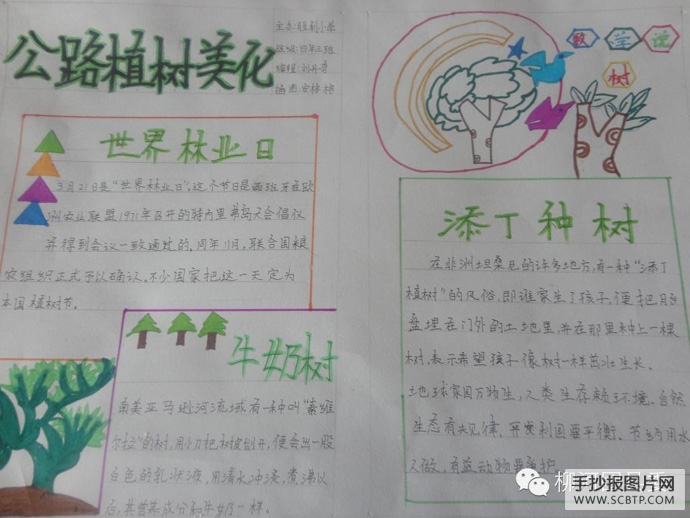 公路植树美化
主办:胜利小学
班级:四年三班
世界林业日
3月21日是“世界林业日”,这个节日是西班牙在欧
洲农业联盟1971年召开的特内里弗岛大会倡议
并得到会议一致通过的,同年11月,联合国粮
农组织正式予以确认,不少国家把这一天定为
本国植树节。
牛奶树
南美亚马逊河流域有一种叫“索维
尔拉”的树,用小刀把树皮划开,便会出一股
白色的乳状液,用清水冲淡,煮沸以
后,其营养成分和牛奶一样。
数学说
树
添丁种树
在非洲坦桑尼的许多地方,有一种“添丁
植树”的风俗,即谁家生了孩子,便把胎
盘埋在门外的土地里,并在那里种上一棵
树,表示希望孩子像树一样茁壮生长。
地球家园万物生,人类生存赖环境,自然
生态有规律,开发利国要平衡。节约用水
人人做,
手抄报图片网
WWW.SCBTP.COM